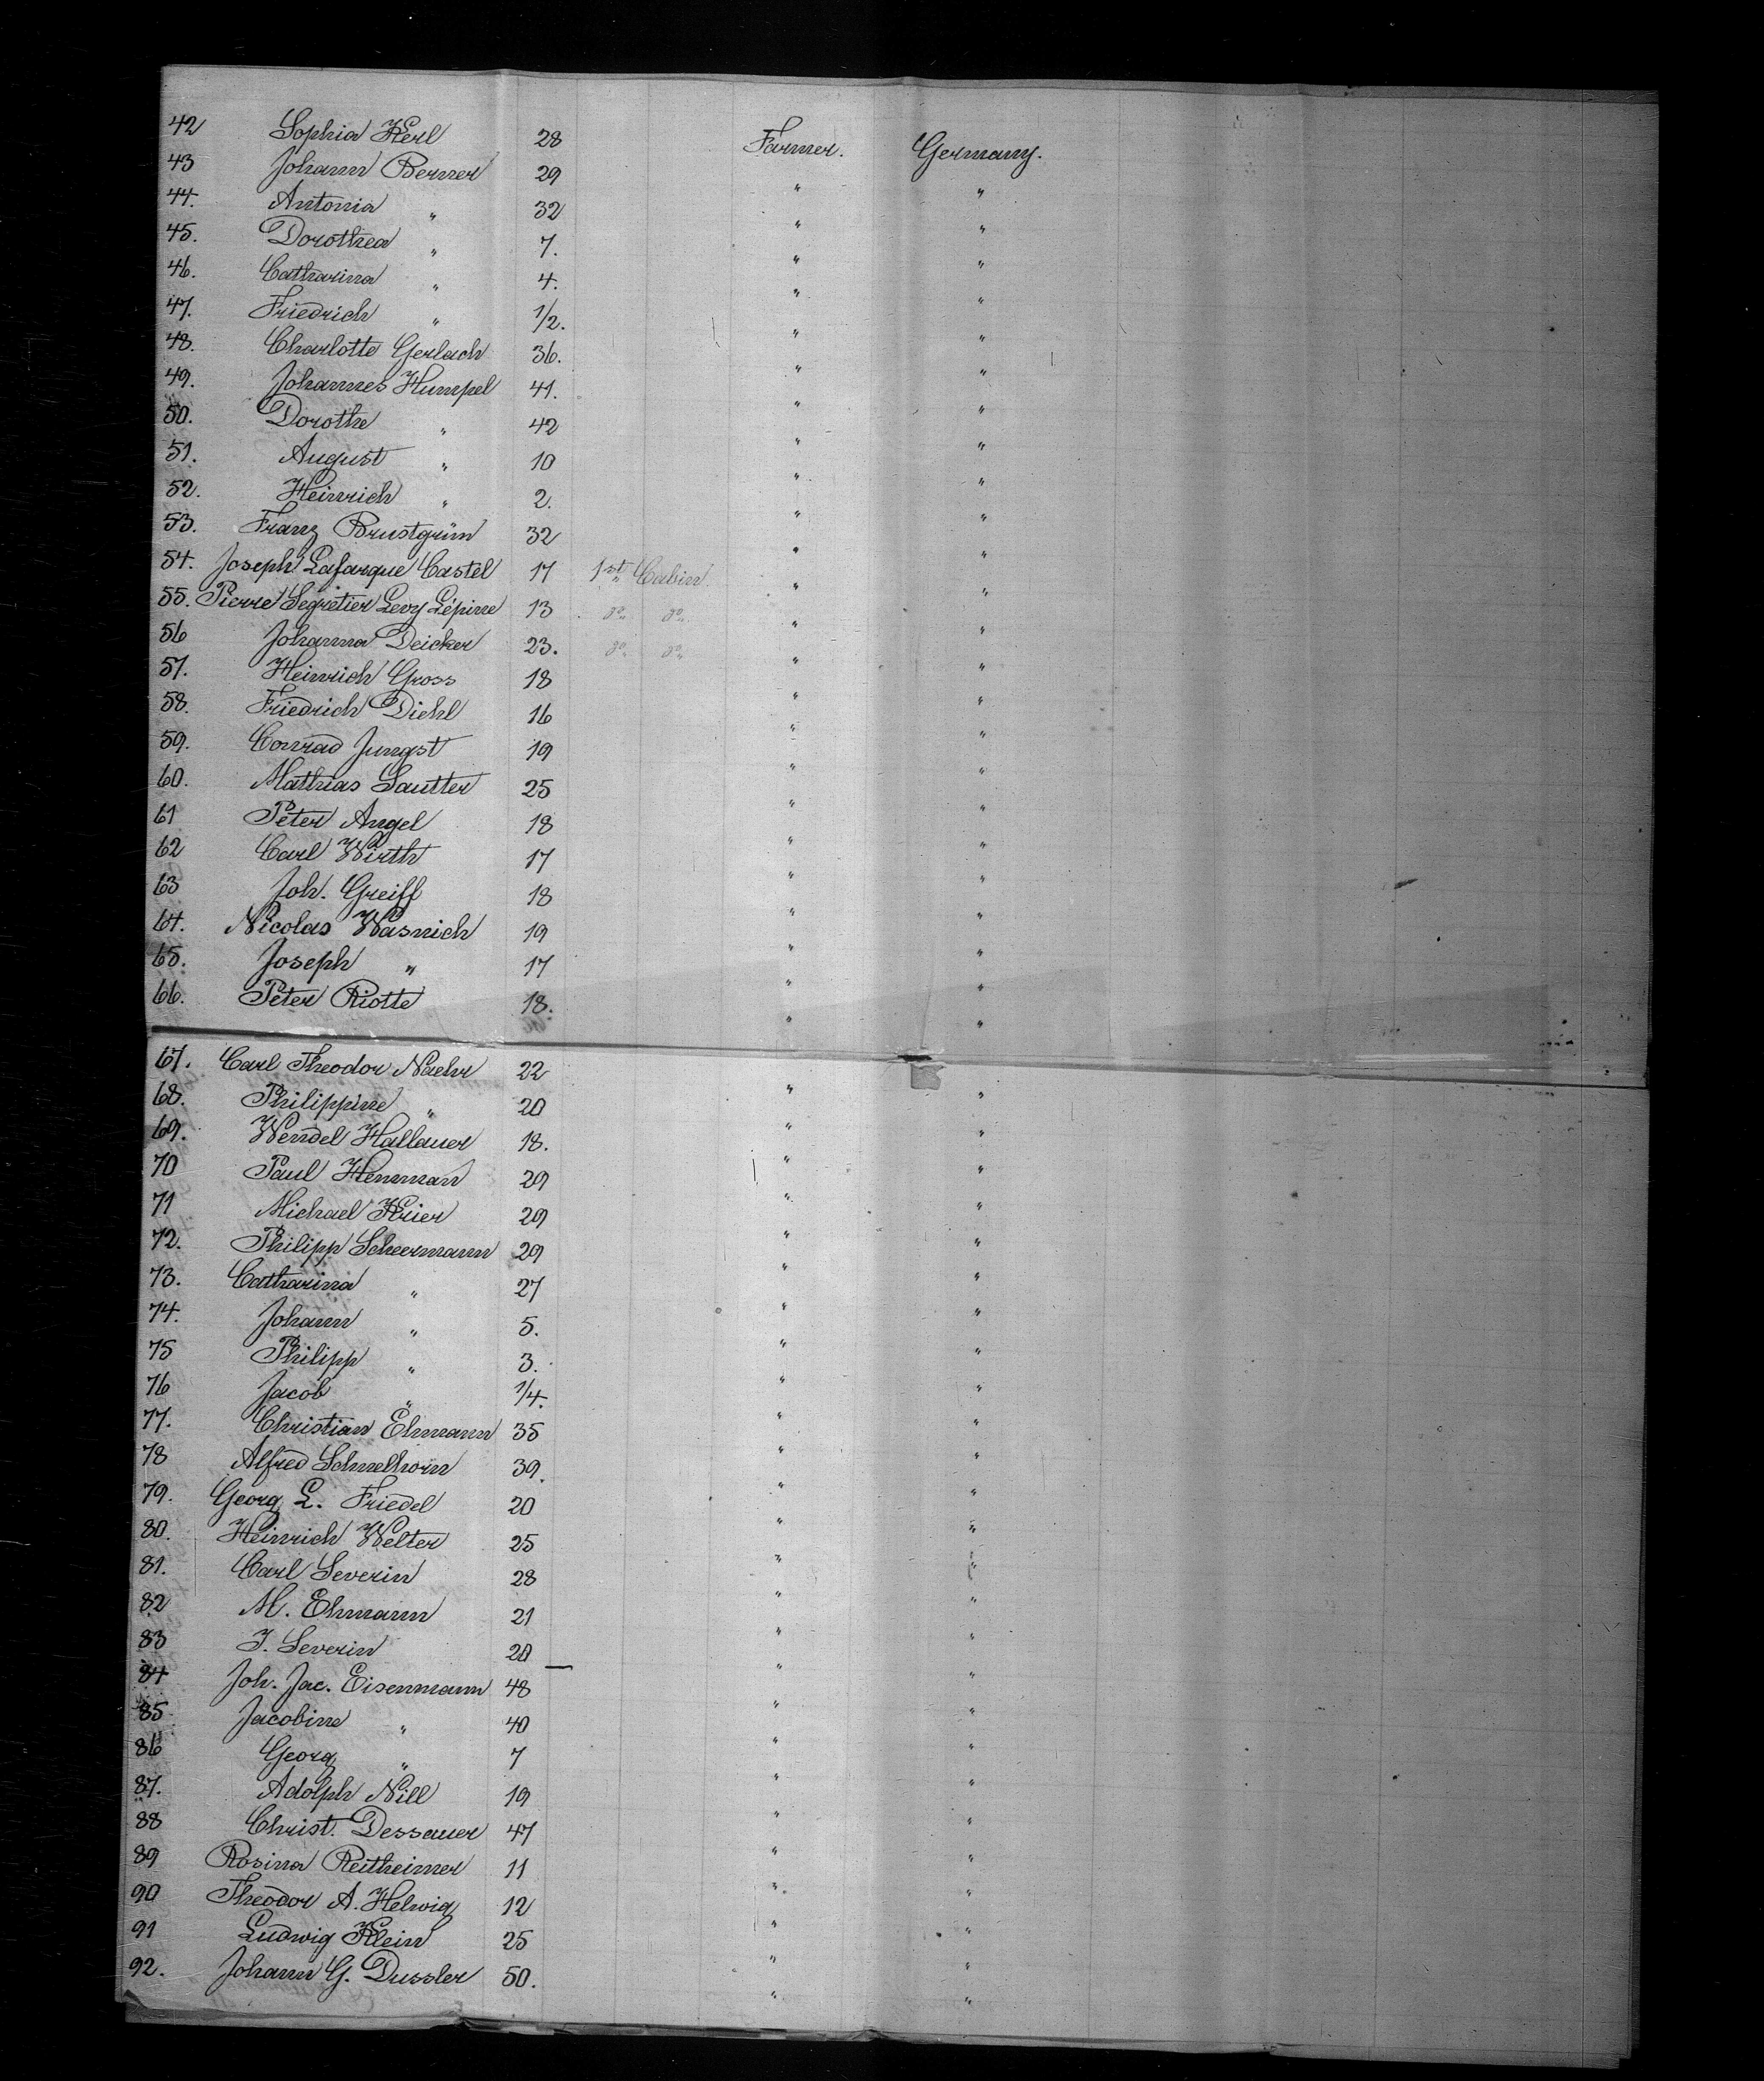 42 Sophia Kerl 28 Farmer. Germany.
43 Johann Berner 29 " "
44. Antonia " 32 " "
45. Dorothea " 7. " "
46. Catharina " 4. " "
47. Friedrich " 1/2. " "
48. Charlotte Gerlach 36. " "
49. Johannes Humpel 41. " "
50. Dorothe " 42 " "
51. August " 10 " "
52. Heinrich " 2. " "
53. Franz Brustgrün 32 " "
54. Joseph Lafarque Castel 17 1st Cabin. " "
55. Pierre Segretier Levy Lépine 13 do do " "
56 Johanna Deicker 23. do do " "
57. Heinrich Gross 18 " "
58. Friedrich Diehl 16 " "
59. Conrad Jungst 19 " "
60. Mathias Sautter 25 " "
61 Peter Angel 18 " "
62 Carl Wirth 17 " "
63 Joh. Greiff 18 " "
64. Nicolas Wasnich 19 " "
65. Joseph " 17 " "
66. Peter Riotte 18. " "
67. Carl Theodor Naehr 22 " "
68. Philippine " 20 " "
69. Wendel Hallauer 18. " "
70 Paul Henman 29 " "
71 Michael Krier 29 " "
72. Philipp Scheermann 29 " "
73. Catharina " 27 " "
74. Johann " 5. " "
75 Philipp " 3. " "
76 Jacob " 1/4. " "
77. Christian Ehmann 35 " "
78 Alfred Schnelhorn 39. " "
79. Georg L. Friedel 20 " "
80. Heinrich Welter 25 " "
81. Carl Severin 28 " "
82 M. Ehmann 21 " "
83 J. Severin 20 " "
84 Joh. Jac. Eisenmann 48 " "
85 Jacobine " 40 " "
86 Georg " 7 " "
87. Adolph Nill 19 " "
88 Christ. Dessauer 47 " "
89 Rosina Reitheimer 11 " "
90 Theodor A. Helwig 12 " "
91 Ludwig Klein 25 " "
92. Johann G. Dussler 50. " "